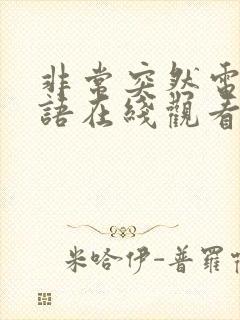 非常突然電
語在綫觀看
米哈伊-普羅